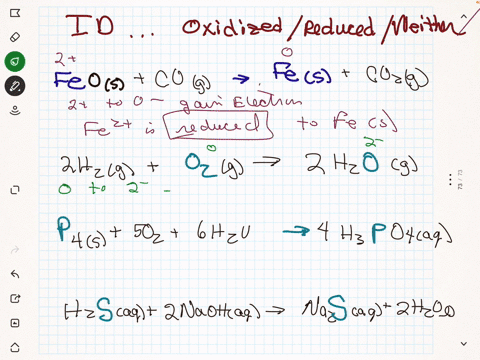 ID ... Oxidized/Reduced/Neither
2+ 0
FeO(s) + CO(g) → Fe(s) + CO2(g)
2+ to 0 - gain Electron
Fe2+ is reduced to Fe(s)
0 2-
2H2(g) + O2(g) → 2H2O (g)
0 to 2- -
P4(s) + 5O2 + 6H2O → 4 H3PO4(aq)
H2S(aq) + 2NaOH(aq) → Na2S(aq) + 2H2O(l)
73 / 73